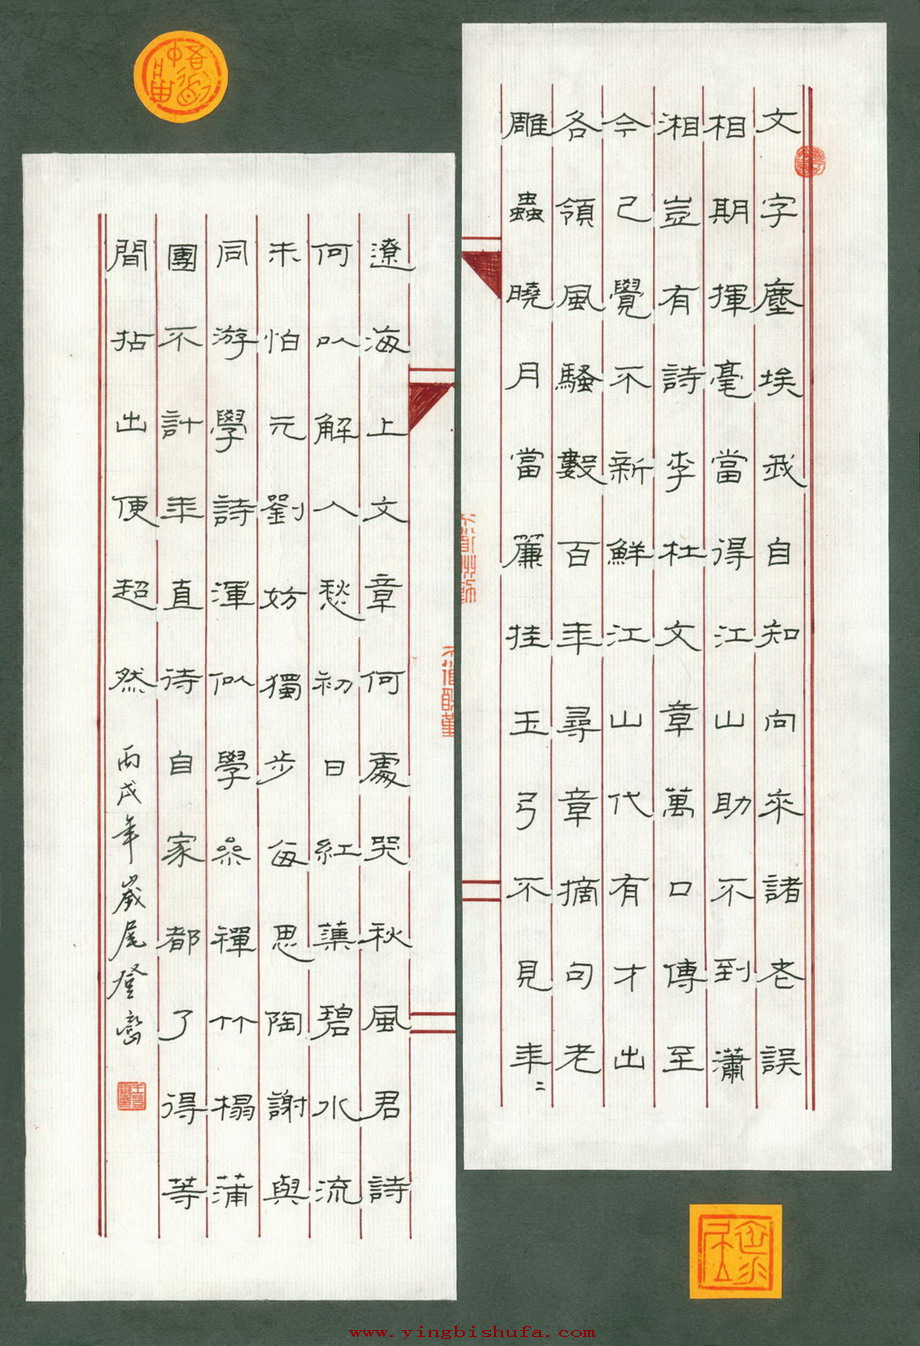 文字塵埃我自知向來諸老誤
相期揮毫當得江山助不到瀟
湘豈有詩李杜文章萬口傳至
今已覺不新鮮江山代有才出
各領風騷數百年尋章摘句老
雕蟲曉月當簾挂玉弓不見年二
遼海上文章何處哭秋風君詩
何以解人愁初日紅蕖碧水流
未怕元劉妨獨步每思陶謝與
同游學詩渾似學參禪竹榻蒲
團不計年直待自家都了得等
間拈出便超然 丙戌年歲尾登峦
www.yingbishufa.com